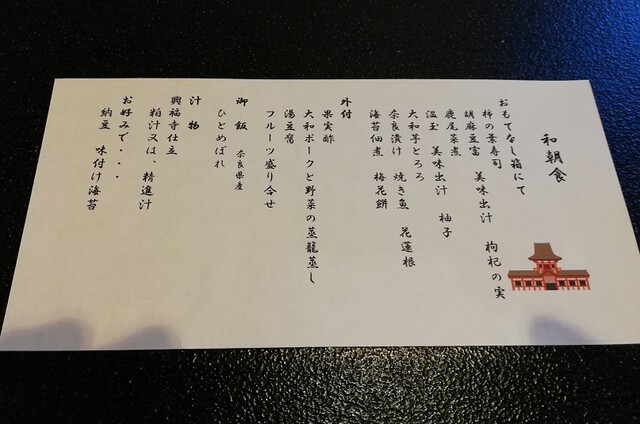 和朝食
おもてなし箱にて
柿の葉寿司
胡麻豆富　美味出汁　枸杞の実
鹿尾菜煮
温玉　美味出汁　柚子
大和芋とろろ
奈良漬け　焼き魚　花蓮根
海苔佃煮　梅花餅
外付
果実酢
大和ポークと野菜の蒸籠蒸し
湯豆腐
フルーツ盛り合せ
御飯　奈良県産
ひとめぼれ
汁物
興福寺仕立
粕汁又は、精進汁
お好みで・・・
納豆　味付け海苔